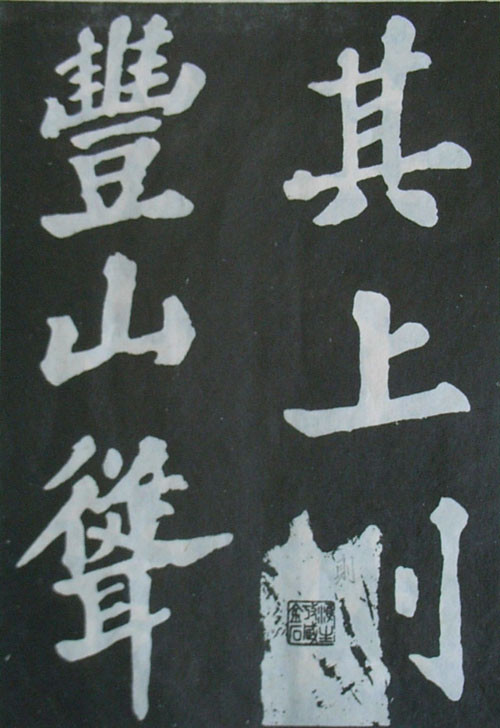 其上則
豐山聳